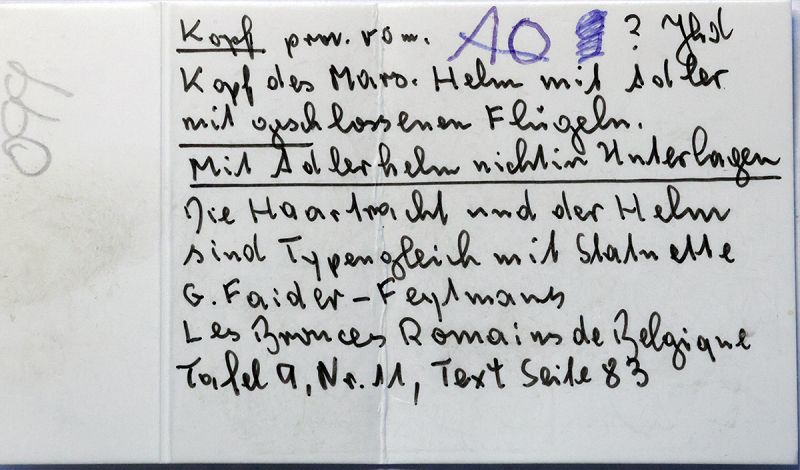 Kopf prov. röm. AQ ? Jhd
Kopf des Mars. Helm mit Adler
mit geschlossenen Flügeln.
Mit Adlerhelm nicht in Unterlagen
Die Haartracht und der Helm
sind Typengleich mit Statuette
G. Faider-Feytmans
Les Bronces Romains de Belgique
Tafel 9, Nr. 11, Text Seite 83
099